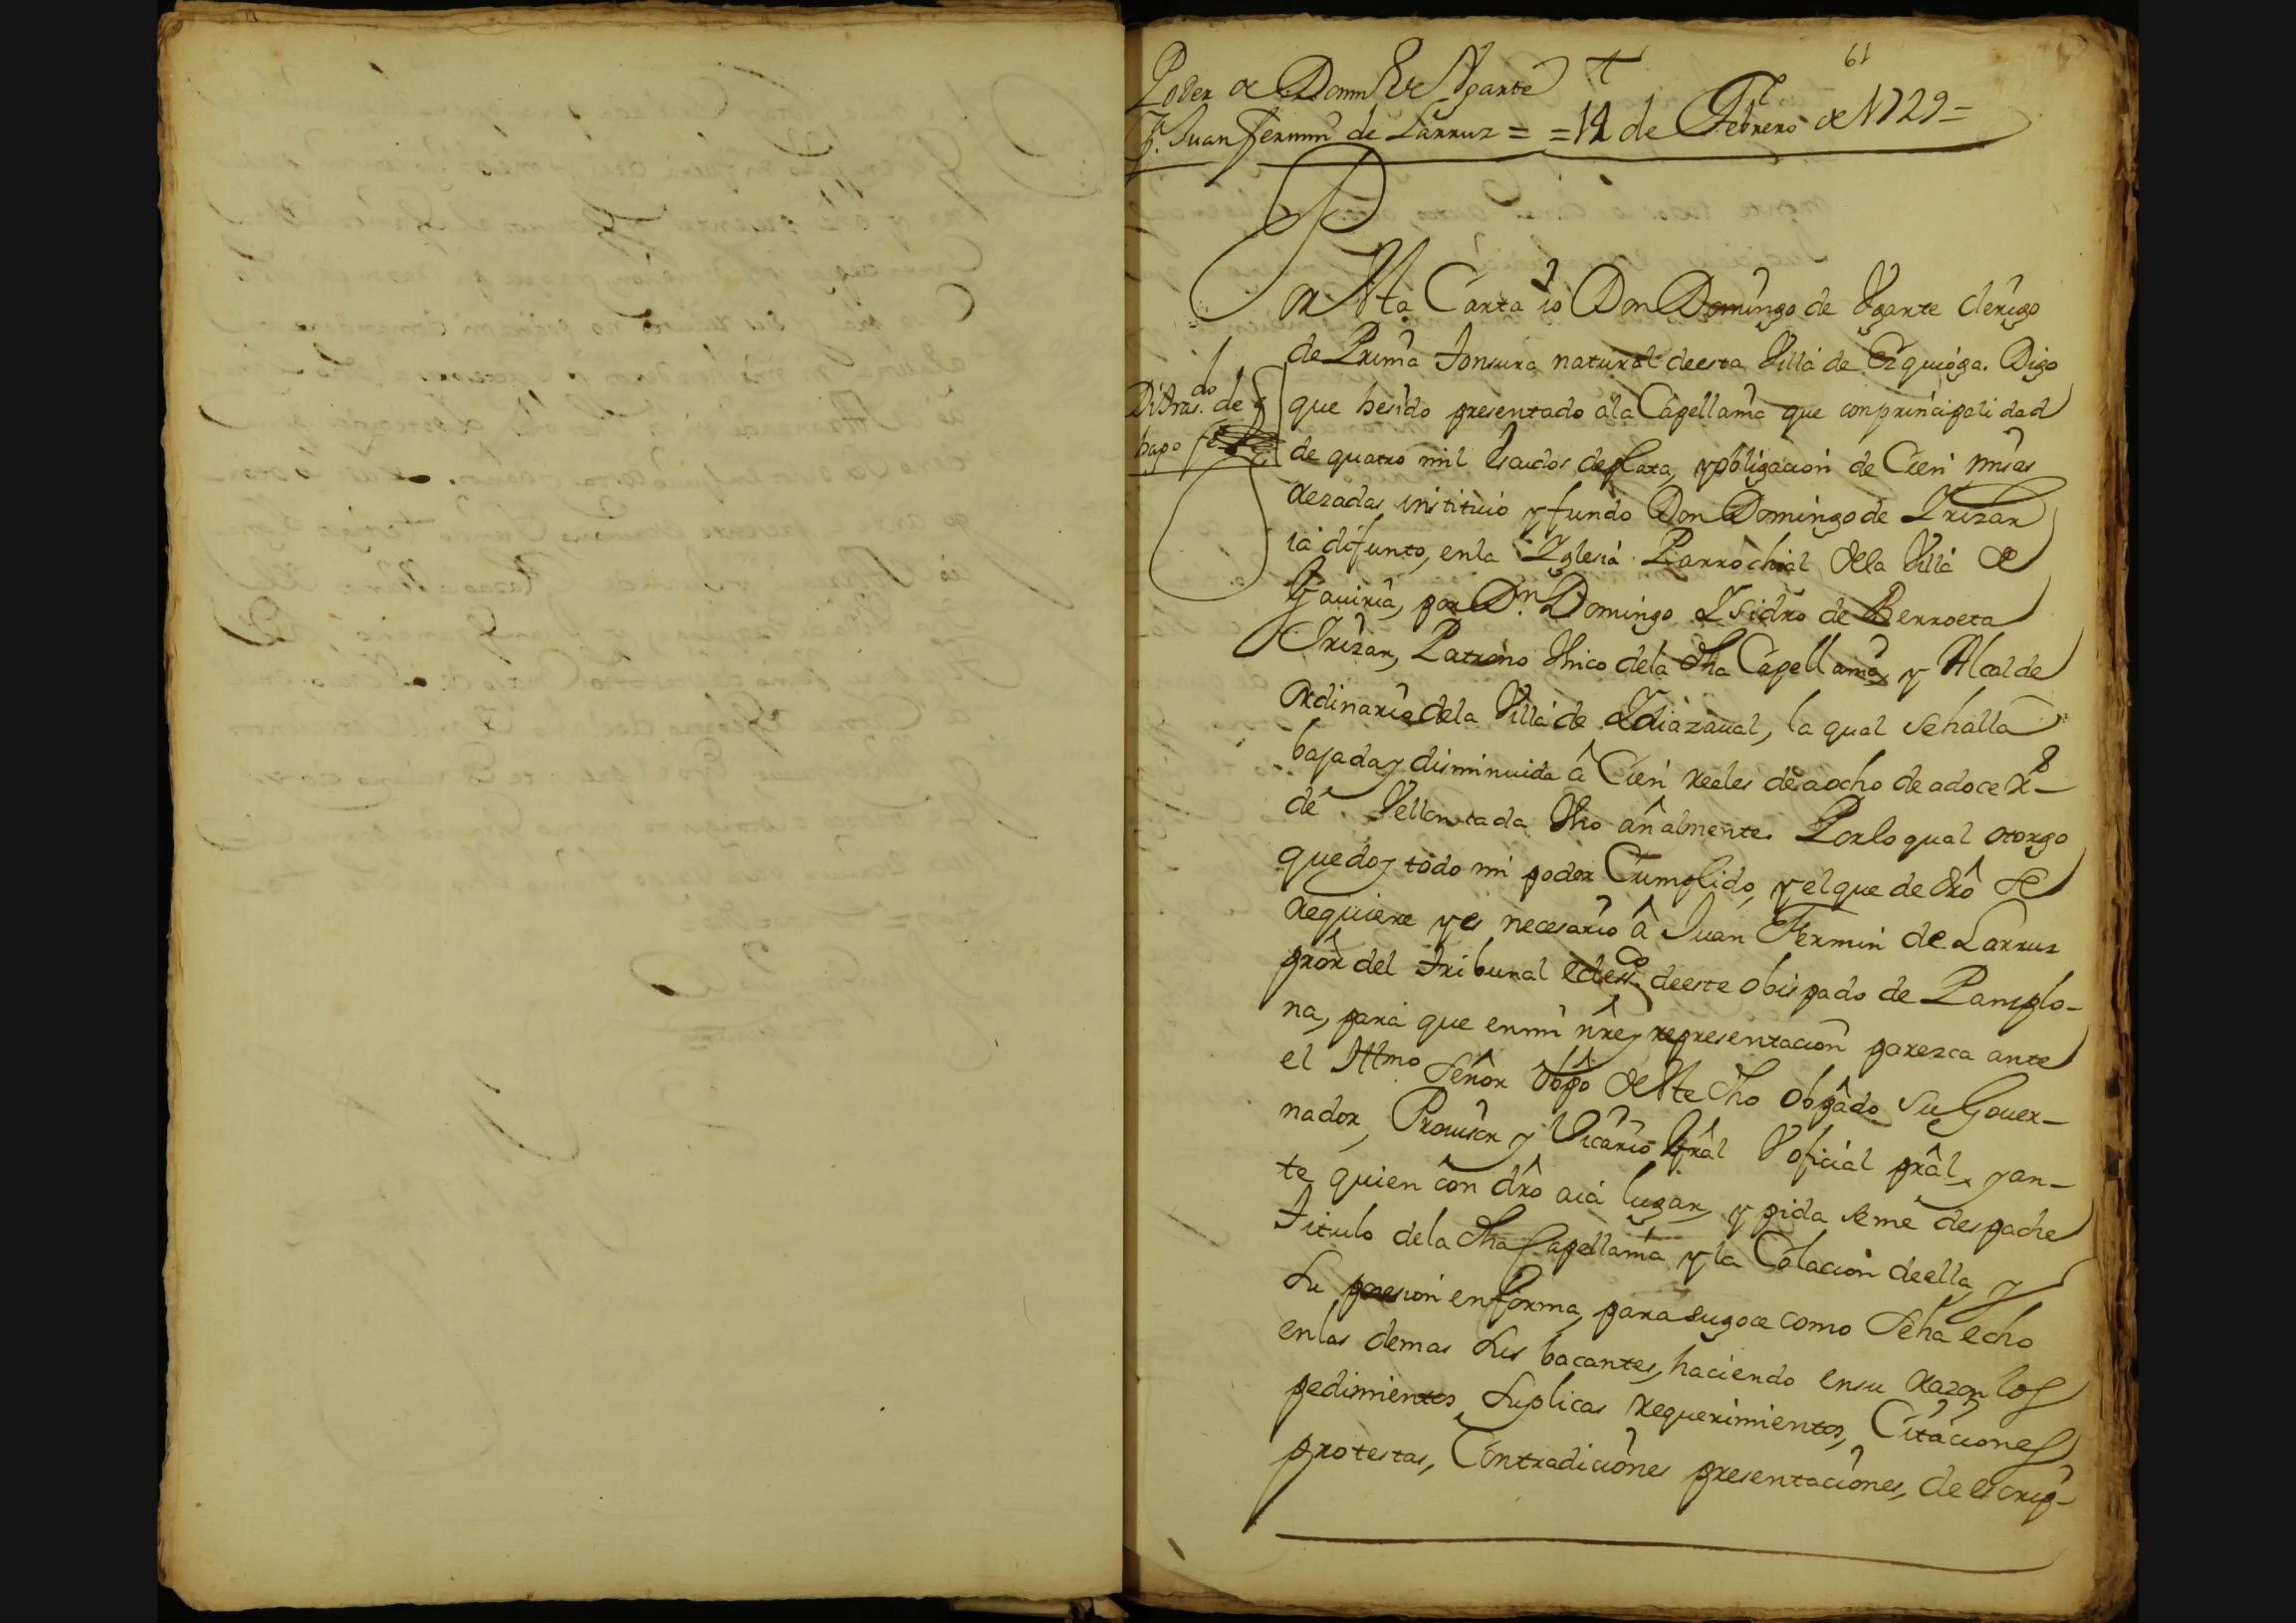 61
Poder de Domin de Vgarte
Pª. Juan Fermin de Larruz = = 12 de Febrero de 1729 =
Por Esta Carta io Don Domingo de Vgarte clerigo
de Prima tonsura natural deesta Villa de Ezquioga. Digo
que hesido presentado ala Capellania que conprincipalidad
de quatro mil Escudos deplata, yobligacion de Cien misas
Rezadas instituio y fundo Don Domingo de Yrizar
ia difunto, enla Yglesia Parrochial dela Villa de
Gauiria, por Dn. Domingo Ysidro de Berroeta
Yrizar, Patrono Vnico dela dha Capellania, y Alcalde
Ordinario dela Villa de Ydiazaual, la qual sehalla
bajada y disminuida â Cien reales de aocho de adoce Rs
de Vellon cada Vno añalmente. Porlo qual otorgo
quedoy todo mi poder Cumplido, yelque de dro se
Requiere yes necesario â Juan Fermin de Larruz
prôr del tribunal ecless.co deeste obispado de Pamplo-
na, para que enmi nre y representacion parezca ante
el Illmo Señor Obpo de Este dho obpâdo su Gouer-
nador, Prouisor y Vicario Grâl V oficial prâl, y an-
te quien con dro aia lugar, y pida seme despache
titulo dela dha Capellania y la Colacion deella y
su posesion enforma, para sugoce como Seha echo
enlas demas sus bacantes, haciendo ensu Razon los
pedimientos Suplicas Requerimientos, Citaciones
protestas, Contradiciones presentaciones, de escrip-
Di tras.do de
hapo